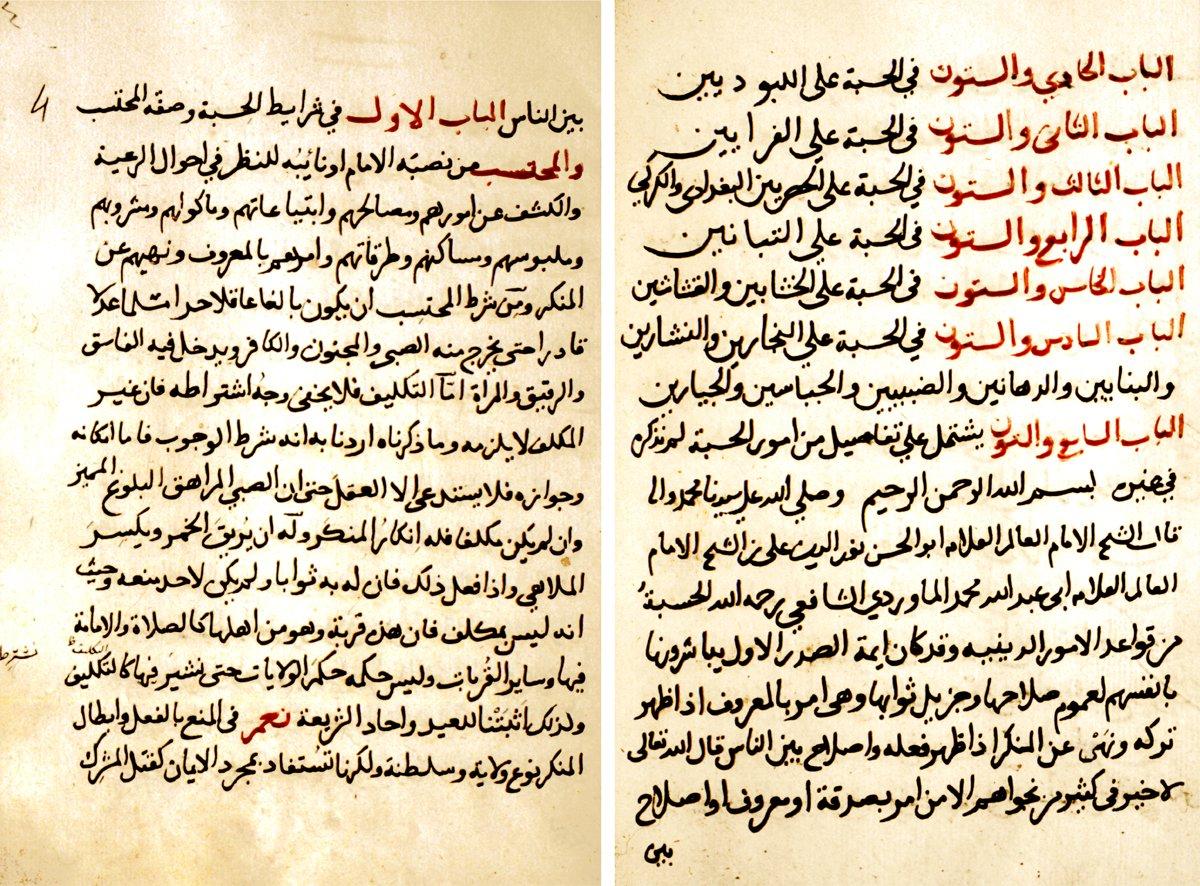 الباب الحادي والستون في الحسبة على اللبوديين
الباب الثاني والستون في الحسبة على الفرايين
الباب الثالث والستون في الحسبة على الحصريين البغدادى والكركي
الباب الرابع والستون في الحسبة علي التبانين
الباب الخامس والستون في الحسبة على الخشابين والقشاشين
الباب السادس والستون في الحسبة على النجارين والنشارين
والبنايين والدهانين والضببيين والجباسين والجيارين
الباب السابع والستون يشتمل علي تفاصيل من امور الحسبة لم نذكره
في غيره بسم الله الرحمن الرحيم وصلي الله علي سيدنا محمد واله
قال الشيخ الامام العالم العلامه ابو الحسن نور الدين على بن الشيخ الامام
العالم العلامه ابى عبد الله محمد الماوردي الشافعي رحمه الله الحسبةُ
من قواعد الامور الدينيه وقد كان ايمة الصدر الاول يباشرونها
بانفسهم لعموم صلاحها وجزيل ثوابها وهى امر بالمعروف اذا ظهر
تركه ونهى عن المنكر اذا ظهر فعله واصلاح بين الناس قال الله تعالى
لا خير في كثير من نجواهم الا من امر بصدقة او معروف او اصلاح
بين
4
بين الناس الباب الاول في شرايط الحسبة وصفه المحتسب
والمحتسب من نصبه الامام او نائيبُه للنظر في احوال الرعية
والكشف عن امورهم ومصالحهم وابتياعاتهم وماكولهم ومشروبهم
وملبوسهم ومساكنهم وطرقاتهم وامرهم بالمعروف ونهيهم عن
المنكر ومن شرط المحتسب ان يكون بالغا عاقلا حرا مسلما عدلا
قادرا حتى يخرج منه الصبي والمجنون والكافر ويدخل فيه الفاسق
والرقيق والمراة امّا التكليف فلا يخفى وجهُ اشتراطه فان غير
المكلف لا يلزمه وما ذكرناه اردنا به انه شرط الوجوب فاما امكانه
وجوازه فلا يستدعى الا العقل حتى ان الصبي المراهق البلوغ المميز
وان لم يكن مكلفا فله انكارُ المنكر وله ان يُريق الخمر ويكسرَ
الملاهي واذا فعل ذلك فان له به ثوابا ولم يكن لاحد منعه وحيث
انه ليس بمكلف فان هذه قربة وهو من اهلها كالصلاة والامامة
فيها وساير القُربات وليس حكمه حكم الولايات حتى نشير فيها كالتكليف
ولذلك اثبتنا للعبد واحاد الرعية نعم في المنع بالفعل وابطال
المنكر نوع ولاية وسلطنة ولكنها تُستفاد بمجرد الايمان كقتل المشرك